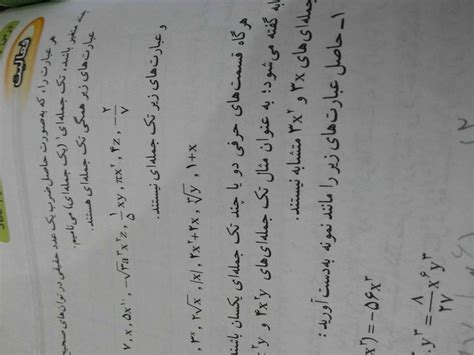 فعالیت
هر عبارت را، که به صورت حاصل ضرب یک عدد حقیقی در توان‌های صحیح
چند متغیر باشد، تک جمله‌ای (یک جمله‌ای) می‌نامیم.
عبارت‌های زیر همگی تک جمله‌ای هستند.
۷, x, ۵x, -√۳a²x²z, ۱/۵ xy, πx², ۴z, -۲/۷
و عبارت‌های زیر تک جمله‌ای نیستند.
۳ˣ, ۲√x, |x|, ۲x²+۲x, ∛y, ۱+x
هرگاه قسمت‌های حرفی دو یا چند تک جمله‌ای یکسان باشند
به گفته می‌شود؛ به عنوان مثال تک جمله‌ای‌های ۴x²y و
جمله‌ای‌های ۳x و ۳x² متشابه نیستند.
۱- حاصل عبارت‌های زیر را مانند نمونه به دست آورید:
x²) = -۵۶x³
y³ = ۸/۲۷ x⁶y³